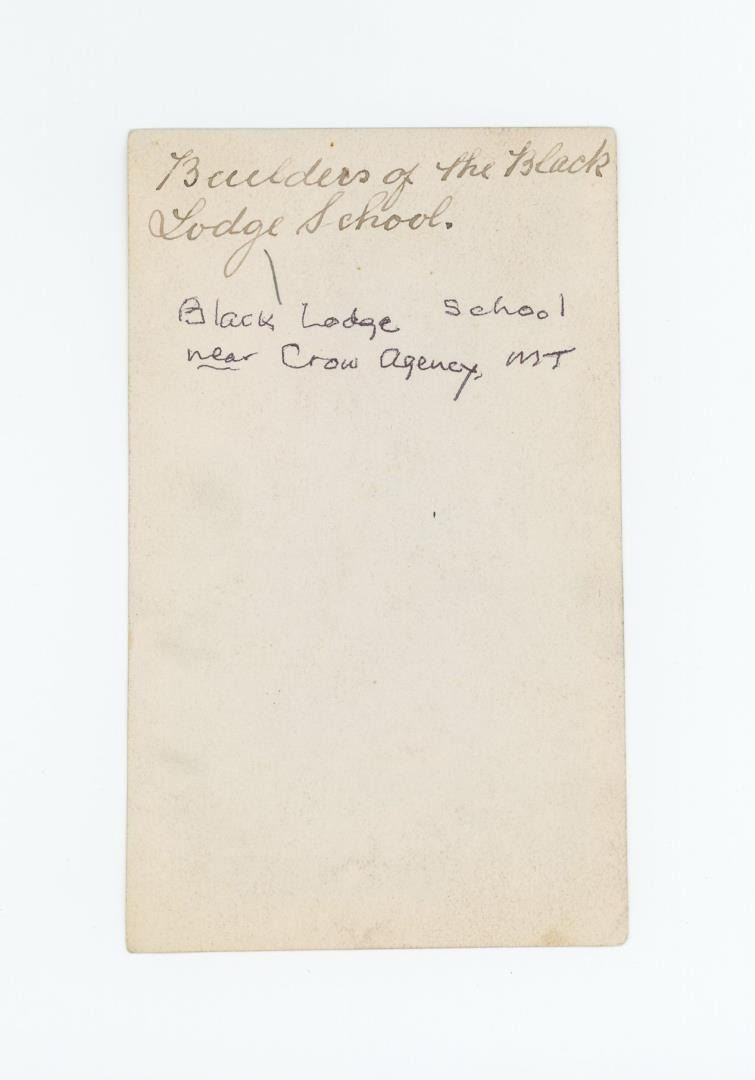 Builders of the Black
Lodge School.
Black Lodge School
near Crow Agency, MT